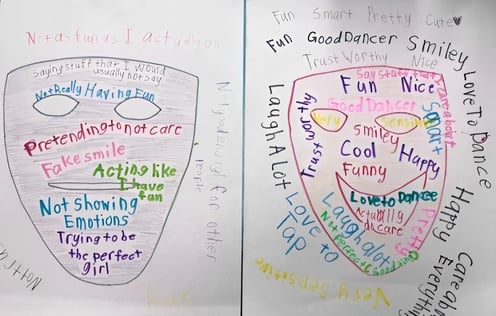 Not as fun as I actually am
Saying stuff that I would
usually not say
Not Really Having Fun
Pretending to not care
Fake smile
Acting like
I have
fun
Not showing
Emotions
Trying to be
the perfect
girl
for other
people
Fun Smart Pretty Cute
Fun Good Dancer Smiley
Trust Worthy Nice
Love To Dance
Happy
Care about
Everything
Very Sensitive
Love to
Tap
Laugh A lot
Say stuff that
Fun Nice
Good Dancer
Very Sensitive
Smart
Trust worthy
smiley
Cool Happy
Funny
Love to Dance
Actually
do care
Laugh alot
Pretty
Not perfect